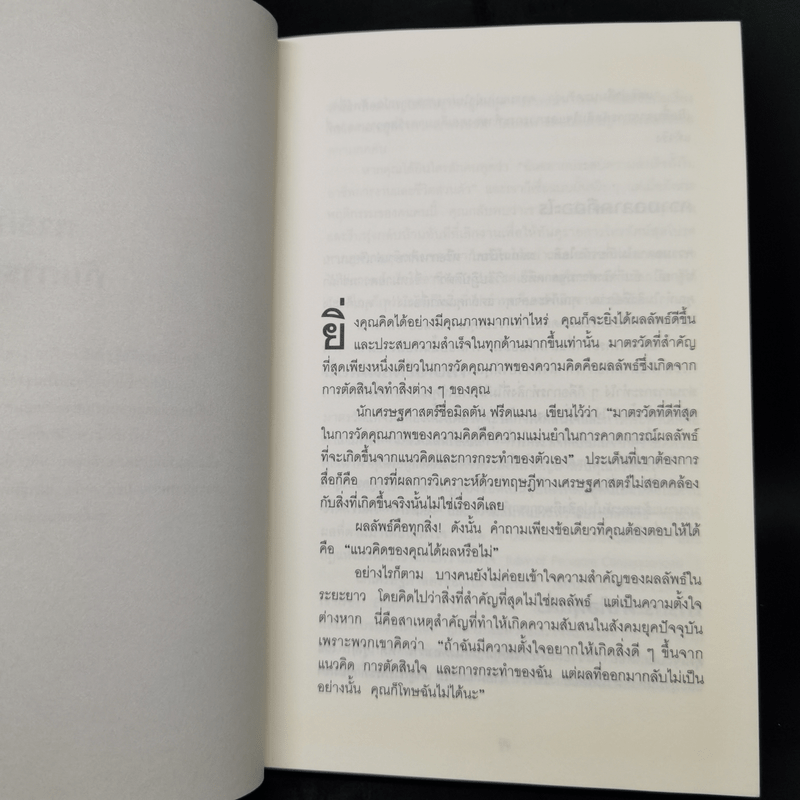 ยิ่งคุณคิดได้อย่างมีคุณภาพมากเท่าไหร่ คุณก็จะยิ่งได้ผลลัพธ์ดีขึ้น
และประสบความสำเร็จในทุกด้านมากขึ้นเท่านั้น มาตรวัดที่สำคัญ
ที่สุดเพียงหนึ่งเดียวในการวัดคุณภาพของความคิดคือผลลัพธ์ซึ่งเกิดจาก
การตัดสินใจทำสิ่งต่าง ๆ ของคุณ
นักเศรษฐศาสตร์ชื่อมิลตัน ฟรีดแมน เขียนไว้ว่า “มาตรวัดที่ดีที่สุด
ในการวัดคุณภาพของความคิดคือความแม่นยำในการคาดการณ์ผลลัพธ์
ที่จะเกิดขึ้นจากแนวคิดและการกระทำของตัวเอง” ประเด็นที่เขาต้องการ
สื่อก็คือ การที่ผลการวิเคราะห์ด้วยทฤษฎีทางเศรษฐศาสตร์ไม่สอดคล้อง
กับสิ่งที่เกิดขึ้นจริงนั้นไม่ใช่เรื่องดีเลย
ผลลัพธ์คือทุกสิ่ง! ดังนั้น คำถามเพียงข้อเดียวที่คุณต้องตอบให้ได้
คือ “แนวคิดของคุณได้ผลหรือไม่”
อย่างไรก็ตาม บางคนยังไม่ค่อยเข้าใจความสำคัญของผลลัพธ์ใน
ระยะยาว โดยคิดไปว่าสิ่งที่สำคัญที่สุดไม่ใช่ผลลัพธ์ แต่เป็นความตั้งใจ
ต่างหาก นี่คือสาเหตุสำคัญที่ทำให้เกิดความสับสนในสังคมยุคปัจจุบัน
เพราะพวกเขาคิดว่า “ถ้าฉันมีความตั้งใจอยากให้เกิดสิ่งดี ๆ ขึ้นจาก
แนวคิด การตัดสินใจ และการกระทำของฉัน แต่ผลที่ออกมากลับไม่เป็น
อย่างนั้น คุณก็โทษฉันไม่ได้นะ”